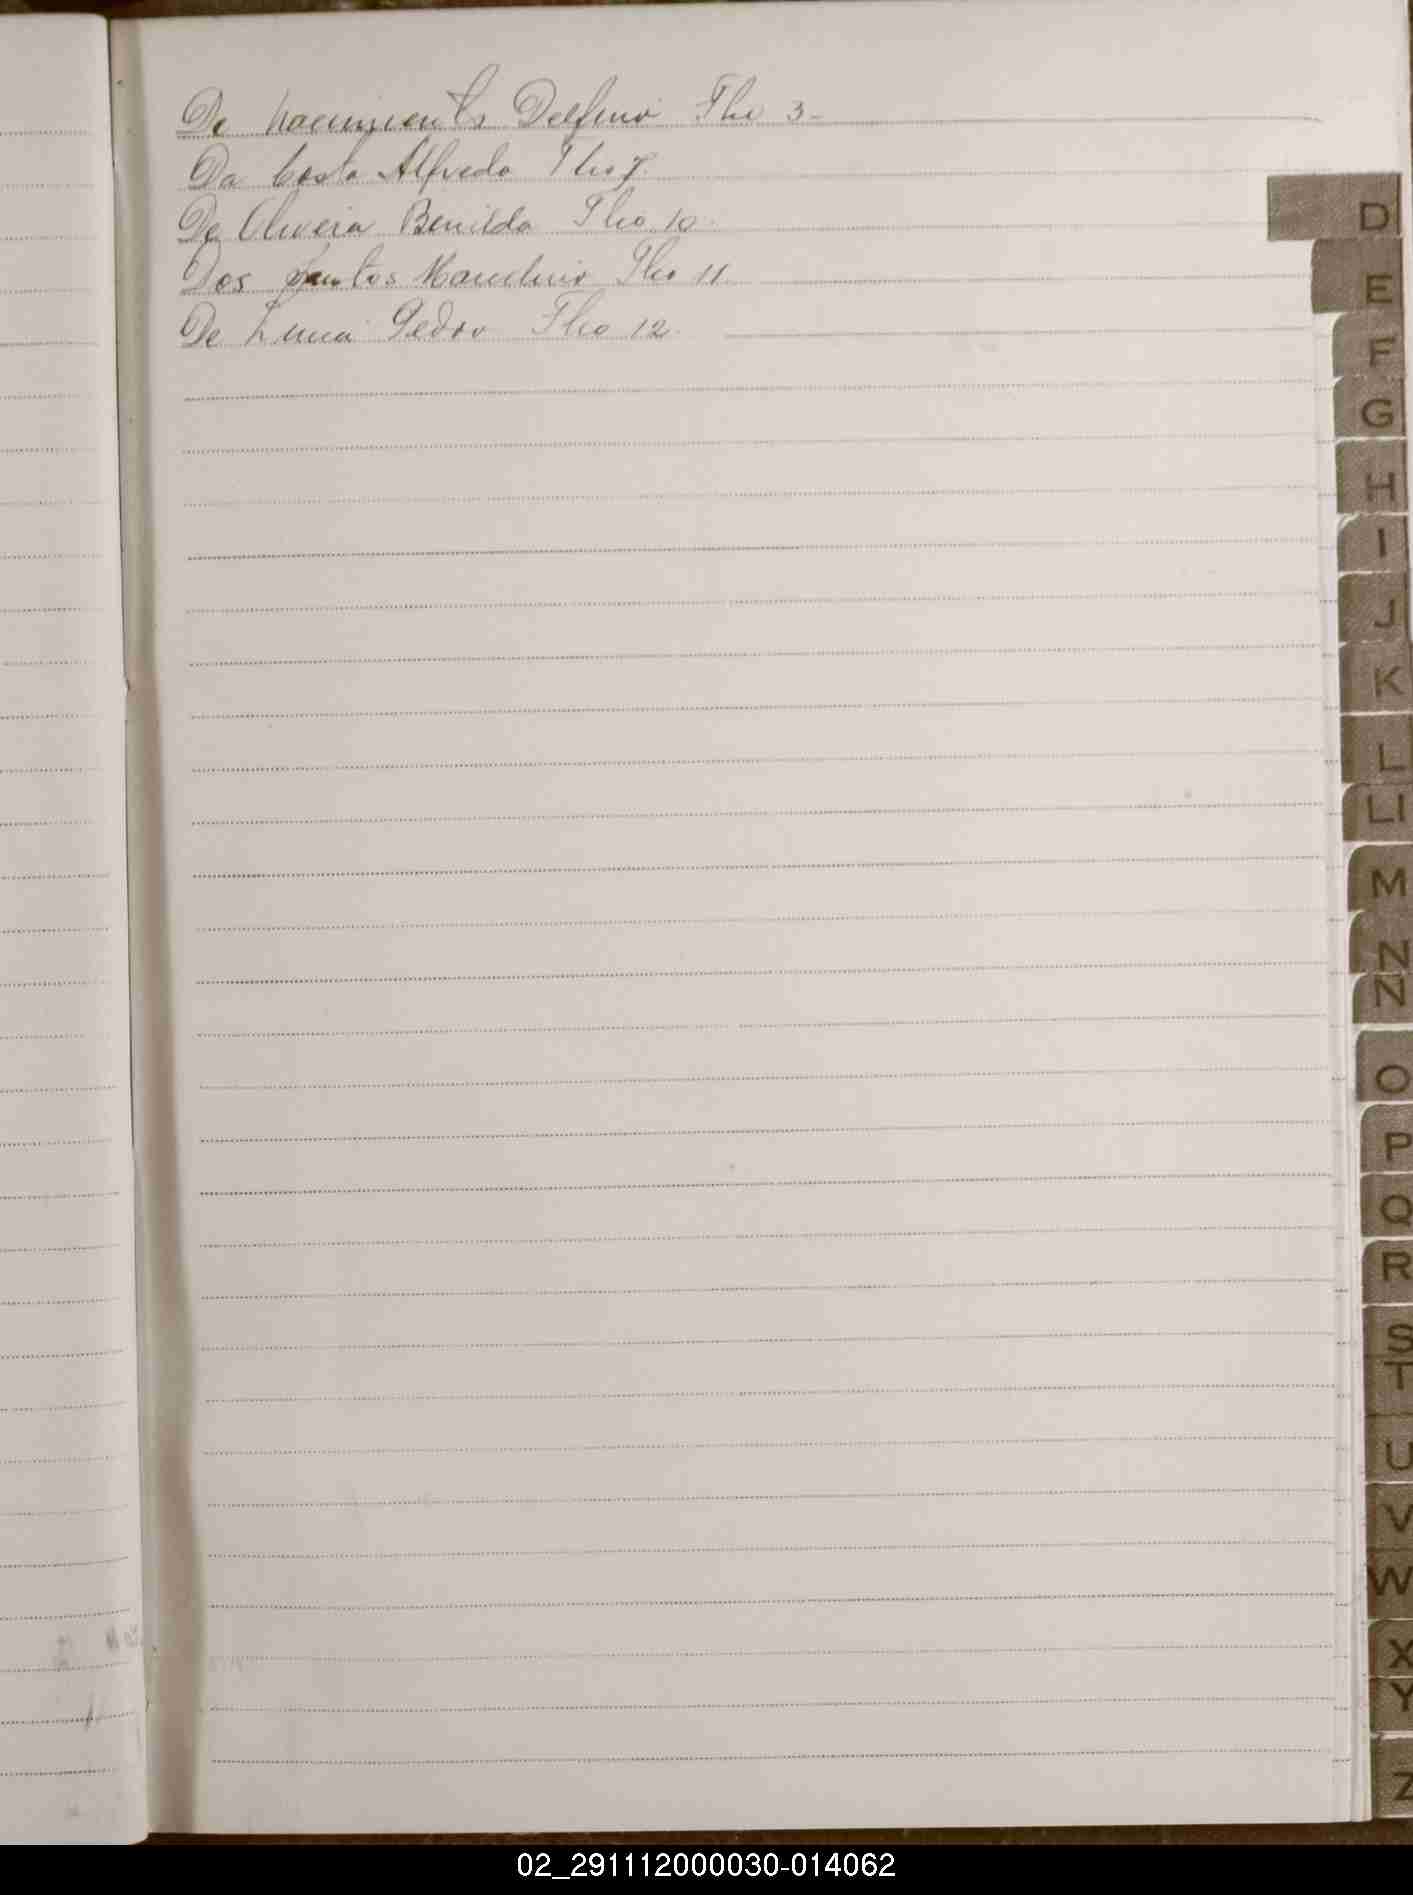 De Nacimiento Delfino Flio 3-
Da Costa Alfredo Flio 7.
De Oliveira Benilda Flio 10.
Dos Santos Marcelino Flio 11.
De Luca Pedro Flio 12.
D
E
F
G
H
I
J
K
L
Ll
M
N
N
O
P
Q
R
S
T
U
V
W
X
Y
Z
02_291112000030-014062